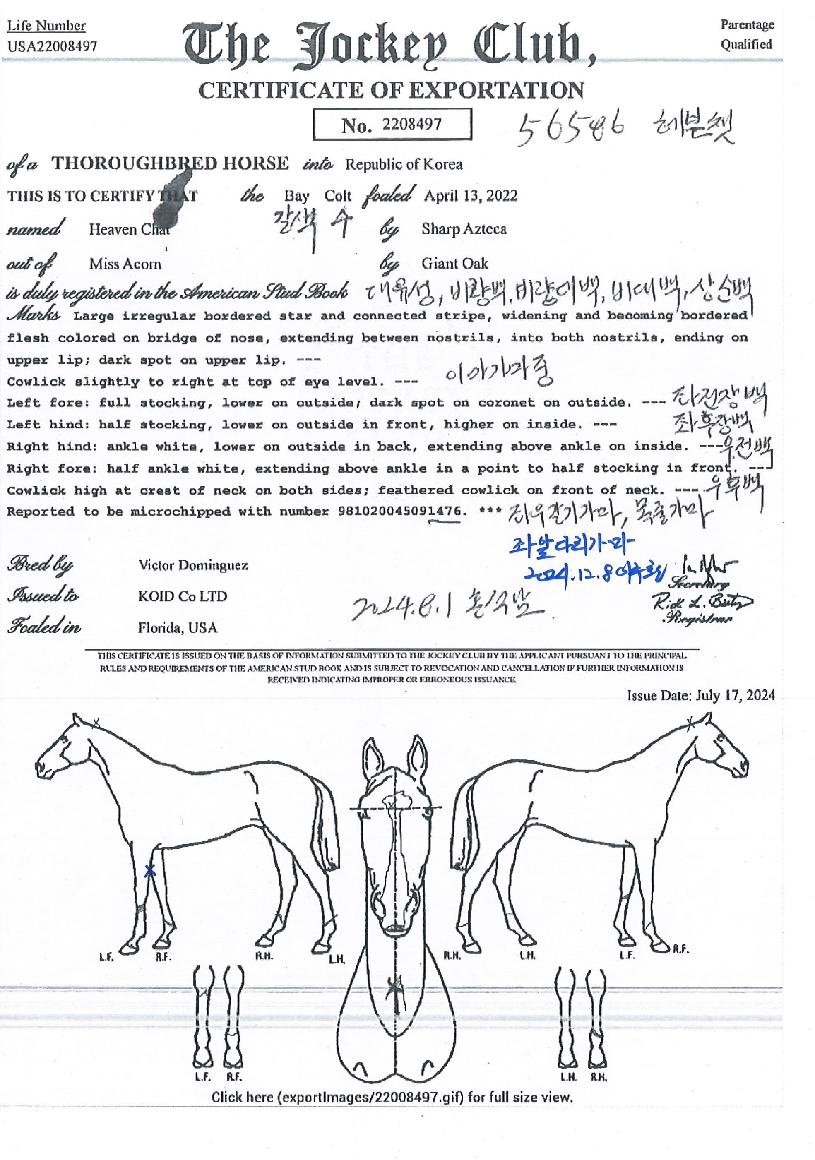 Life Number
USA22008497
Parentage
Qualified
The Jockey Club,
CERTIFICATE OF EXPORTATION
No. 2208497
56586 헤븐챗
of a THOROUGHBRED HORSE into Republic of Korea
THIS IS TO CERTIFY THAT the Bay Colt foaled April 13, 2022
갈색 수
named Heaven Chat by Sharp Azteca
out of Miss Acorn by Giant Oak
is duly registered in the American Stud Book 대유성, 비량백, 비량대백, 비대백, 상순백
Marks Large irregular bordered star and connected stripe, widening and becoming bordered
flesh colored on bridge of nose, extending between nostrils, into both nostrils, ending on
upper lip; dark spot on upper lip. ---
Cowlick slightly to right at top of eye level. --- 이마가마중
Left fore: full stocking, lower on outside; dark spot on coronet on outside. --- 좌전장백
Left hind: half stocking, lower on outside in front, higher on inside. --- 좌후장백
Right hind: ankle white, lower on outside in back, extending above ankle on inside. --- 우전백
Right fore: half ankle white, extending above ankle in a point to half stocking in front. ---
Cowlick high at crest of neck on both sides; feathered cowlick on front of neck. --- 우후백
Reported to be microchipped with number 981020045091476. *** 좌우갈기가마, 목줄가마
좌앞다리가마
2024.12.8
Bred by Victor Dominguez
Secretary
Issued to KOID Co LTD
2024.8.1
Registrar
Foaled in Florida, USA
THIS CERTIFICATE IS ISSUED ON THE BASIS OF INFORMATION SUBMITTED TO THE JOCKEY CLUB BY THE APPLICANT PURSUANT TO THE PRINCIPAL
RULES AND REQUIREMENTS OF THE AMERICAN STUD BOOK AND IS SUBJECT TO REVOCATION AND CANCELLATION IF FURTHER INFORMATION IS
RECEIVED INDICATING IMPROPER OR ERRONEOUS ISSUANCE
Issue Date: July 17, 2024
L.F. R.F. R.H. L.H. R.H. L.H. L.F. R.F.
L.F. R.F. L.H. R.H.
Click here (exportImages/22008497.gif) for full size view.